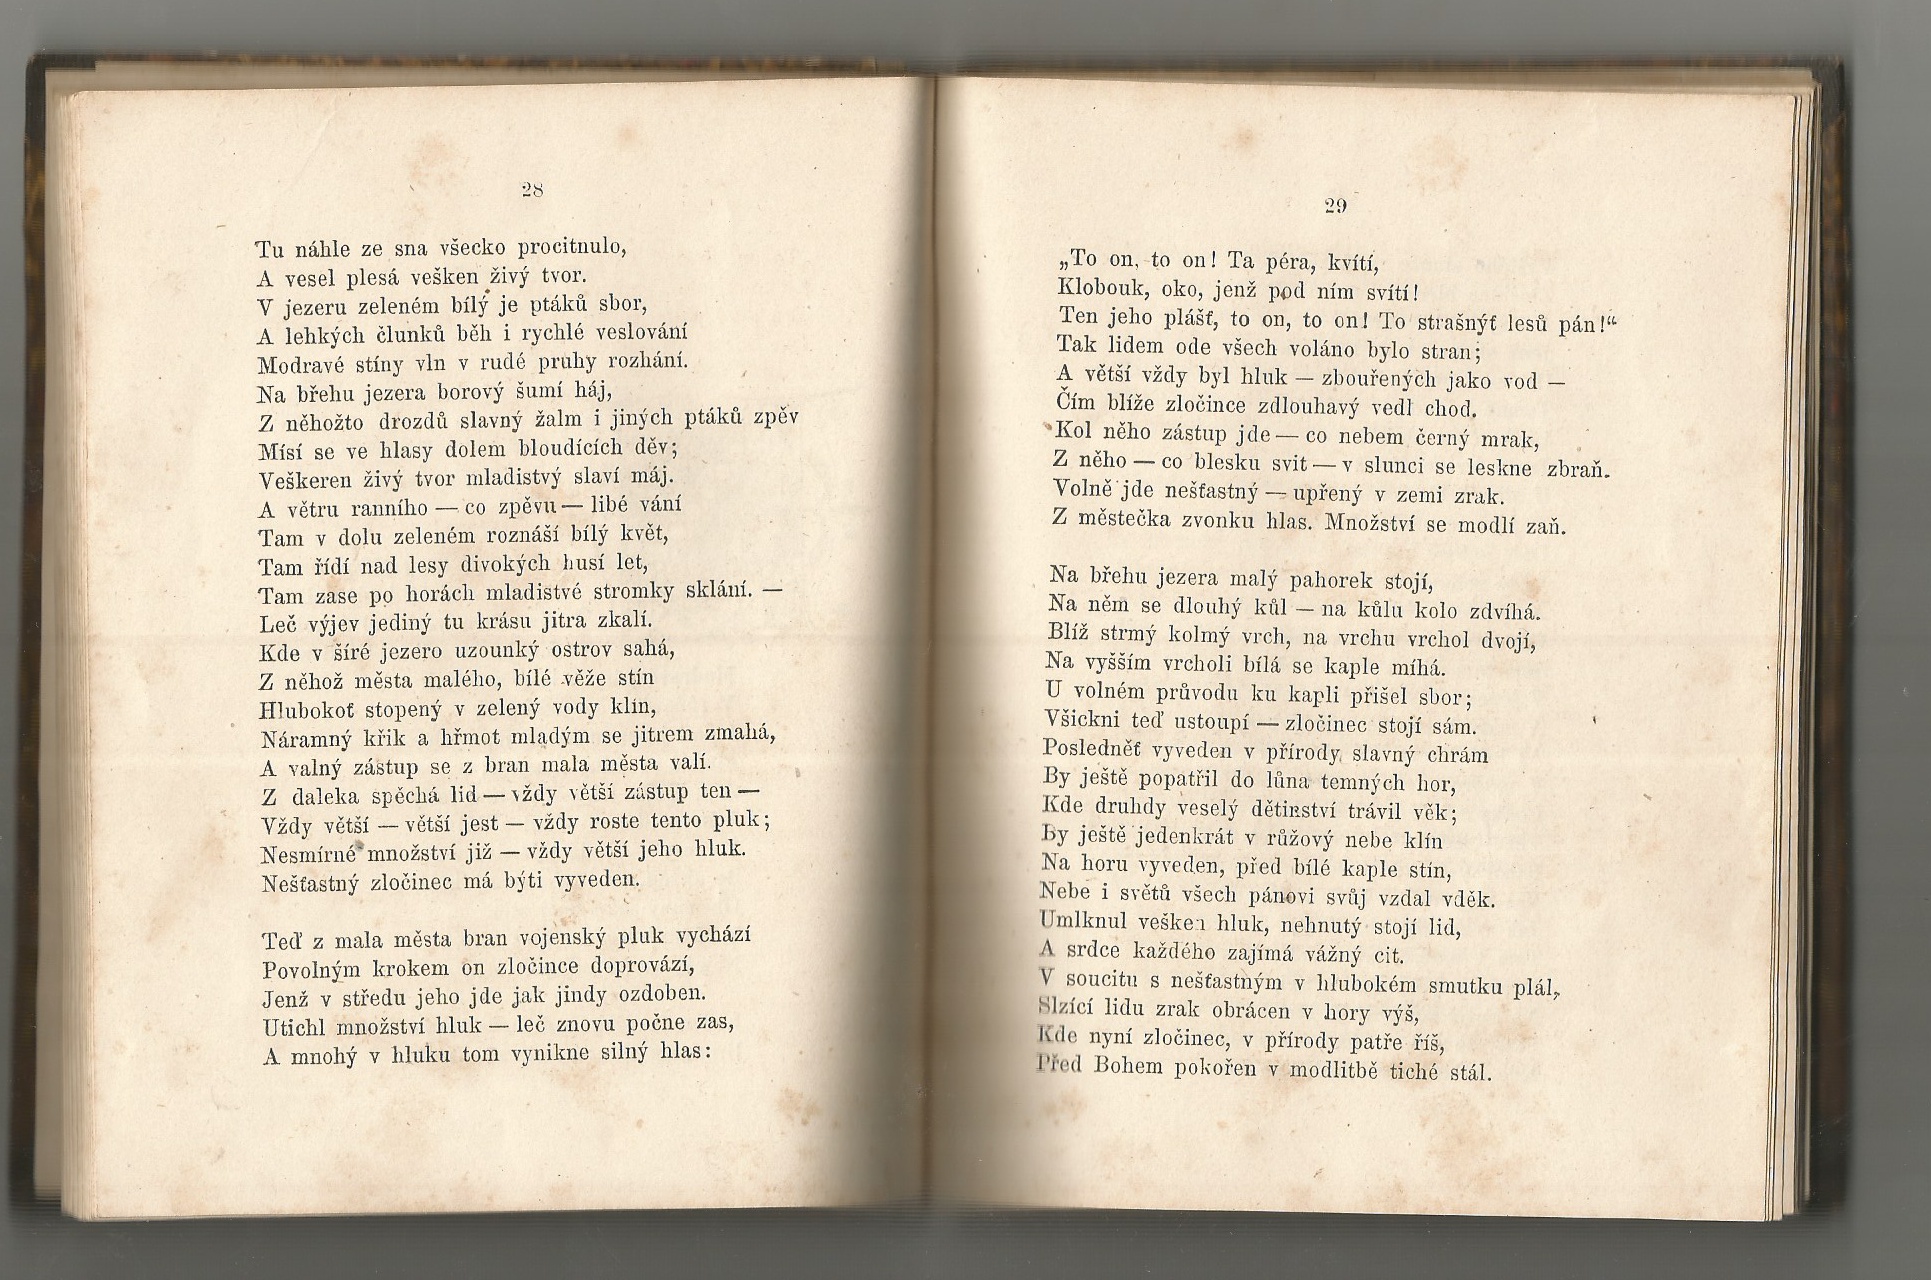 28
Tu náhle ze sna všecko procitnulo,
A vesel plesá vešken živý tvor.
V jezeru zeleném bílý je ptáků sbor,
A lehkých člunků běh i rychlé veslování
Modravé stíny vln v rudé pruhy rozhání.
Na břehu jezera borový šumí háj,
Z něhožto drozdů slavný žalm i jiných ptáků zpěv
Mísí se ve hlasy dolem bloudících děv;
Veškeren živý tvor mladistvý slaví máj.
A větru ranního — co zpěvu — libé vání
Tam v dolu zeleném roznáší bílý květ,
Tam řídí nad lesy divokých husí let,
Tam zase po horách mladistvé stromky sklání. —
Leč výjev jediný tu krásu jitra zkalí.
Kde v šíré jezero uzounký ostrov sahá,
Z něhož města malého, bílé věže stín
Hlubokoť stopený v zelený vody klín,
Náramný křik a hřmot mladým se jitrem zmahá,
A valný zástup se z bran mala města valí.
Z daleka spěchá lid — vždy větší zástup ten —
Vždy větší — větší jest — vždy roste tento pluk;
Nesmírné množství již — vždy větší jeho hluk.
Nešťastný zločinec má býti vyveden.
Teď z mala města bran vojenský pluk vychází
Povolným krokem on zločince doprovází,
Jenž v středu jeho jde jak jindy ozdoben.
Utichl množství hluk — leč znovu počne zas,
A mnohý v hluku tom vynikne silný hlas:
29
„To on, to on! Ta péra, kvítí,
Klobouk, oko, jenž pod ním svítí!
Ten jeho plášť, to on, to on! To strašnýť lesů pán!“
Tak lidem ode všech voláno bylo stran;
A větší vždy byl hluk — zbouřených jako vod —
Čím blíže zločince zdlouhavý vedl chod.
Kol něho zástup jde — co nebem černý mrak,
Z něho — co blesku svit — v slunci se leskne zbraň.
Volně jde nešťastný — upřený v zemi zrak.
Z městečka zvonku hlas. Množství se modlí zaň.
Na břehu jezera malý pahorek stojí,
Na něm se dlouhý kůl — na kůlu kolo zdvíhá.
Blíž strmý kolmý vrch, na vrchu vrchol dvojí,
Na vyšším vrcholi bílá se kaple míhá.
U volném průvodu ku kapli přišel sbor;
Všickni teď ustoupí — zločinec stojí sám.
Posledněť vyveden v přírody slavný chrám
By ještě popatřil do lůna temných hor,
Kde druhdy veselý dětinství trávil věk;
By ještě jedenkrát v růžový nebe klín
Na horu vyveden, před bílé kaple stín,
Nebe i světů všech pánovi svůj vzdal vděk.
Umlknul vešken hluk, nehnutý stojí lid,
A srdce každého zajímá vážný cit.
V soucitu s nešťastným v hlubokém smutku plál,
Slzící lidu zrak obrácen v hory výš,
Kde nyní zločinec, v přírody patře říš,
Před Bohem pokořen v modlitbě tiché stál.